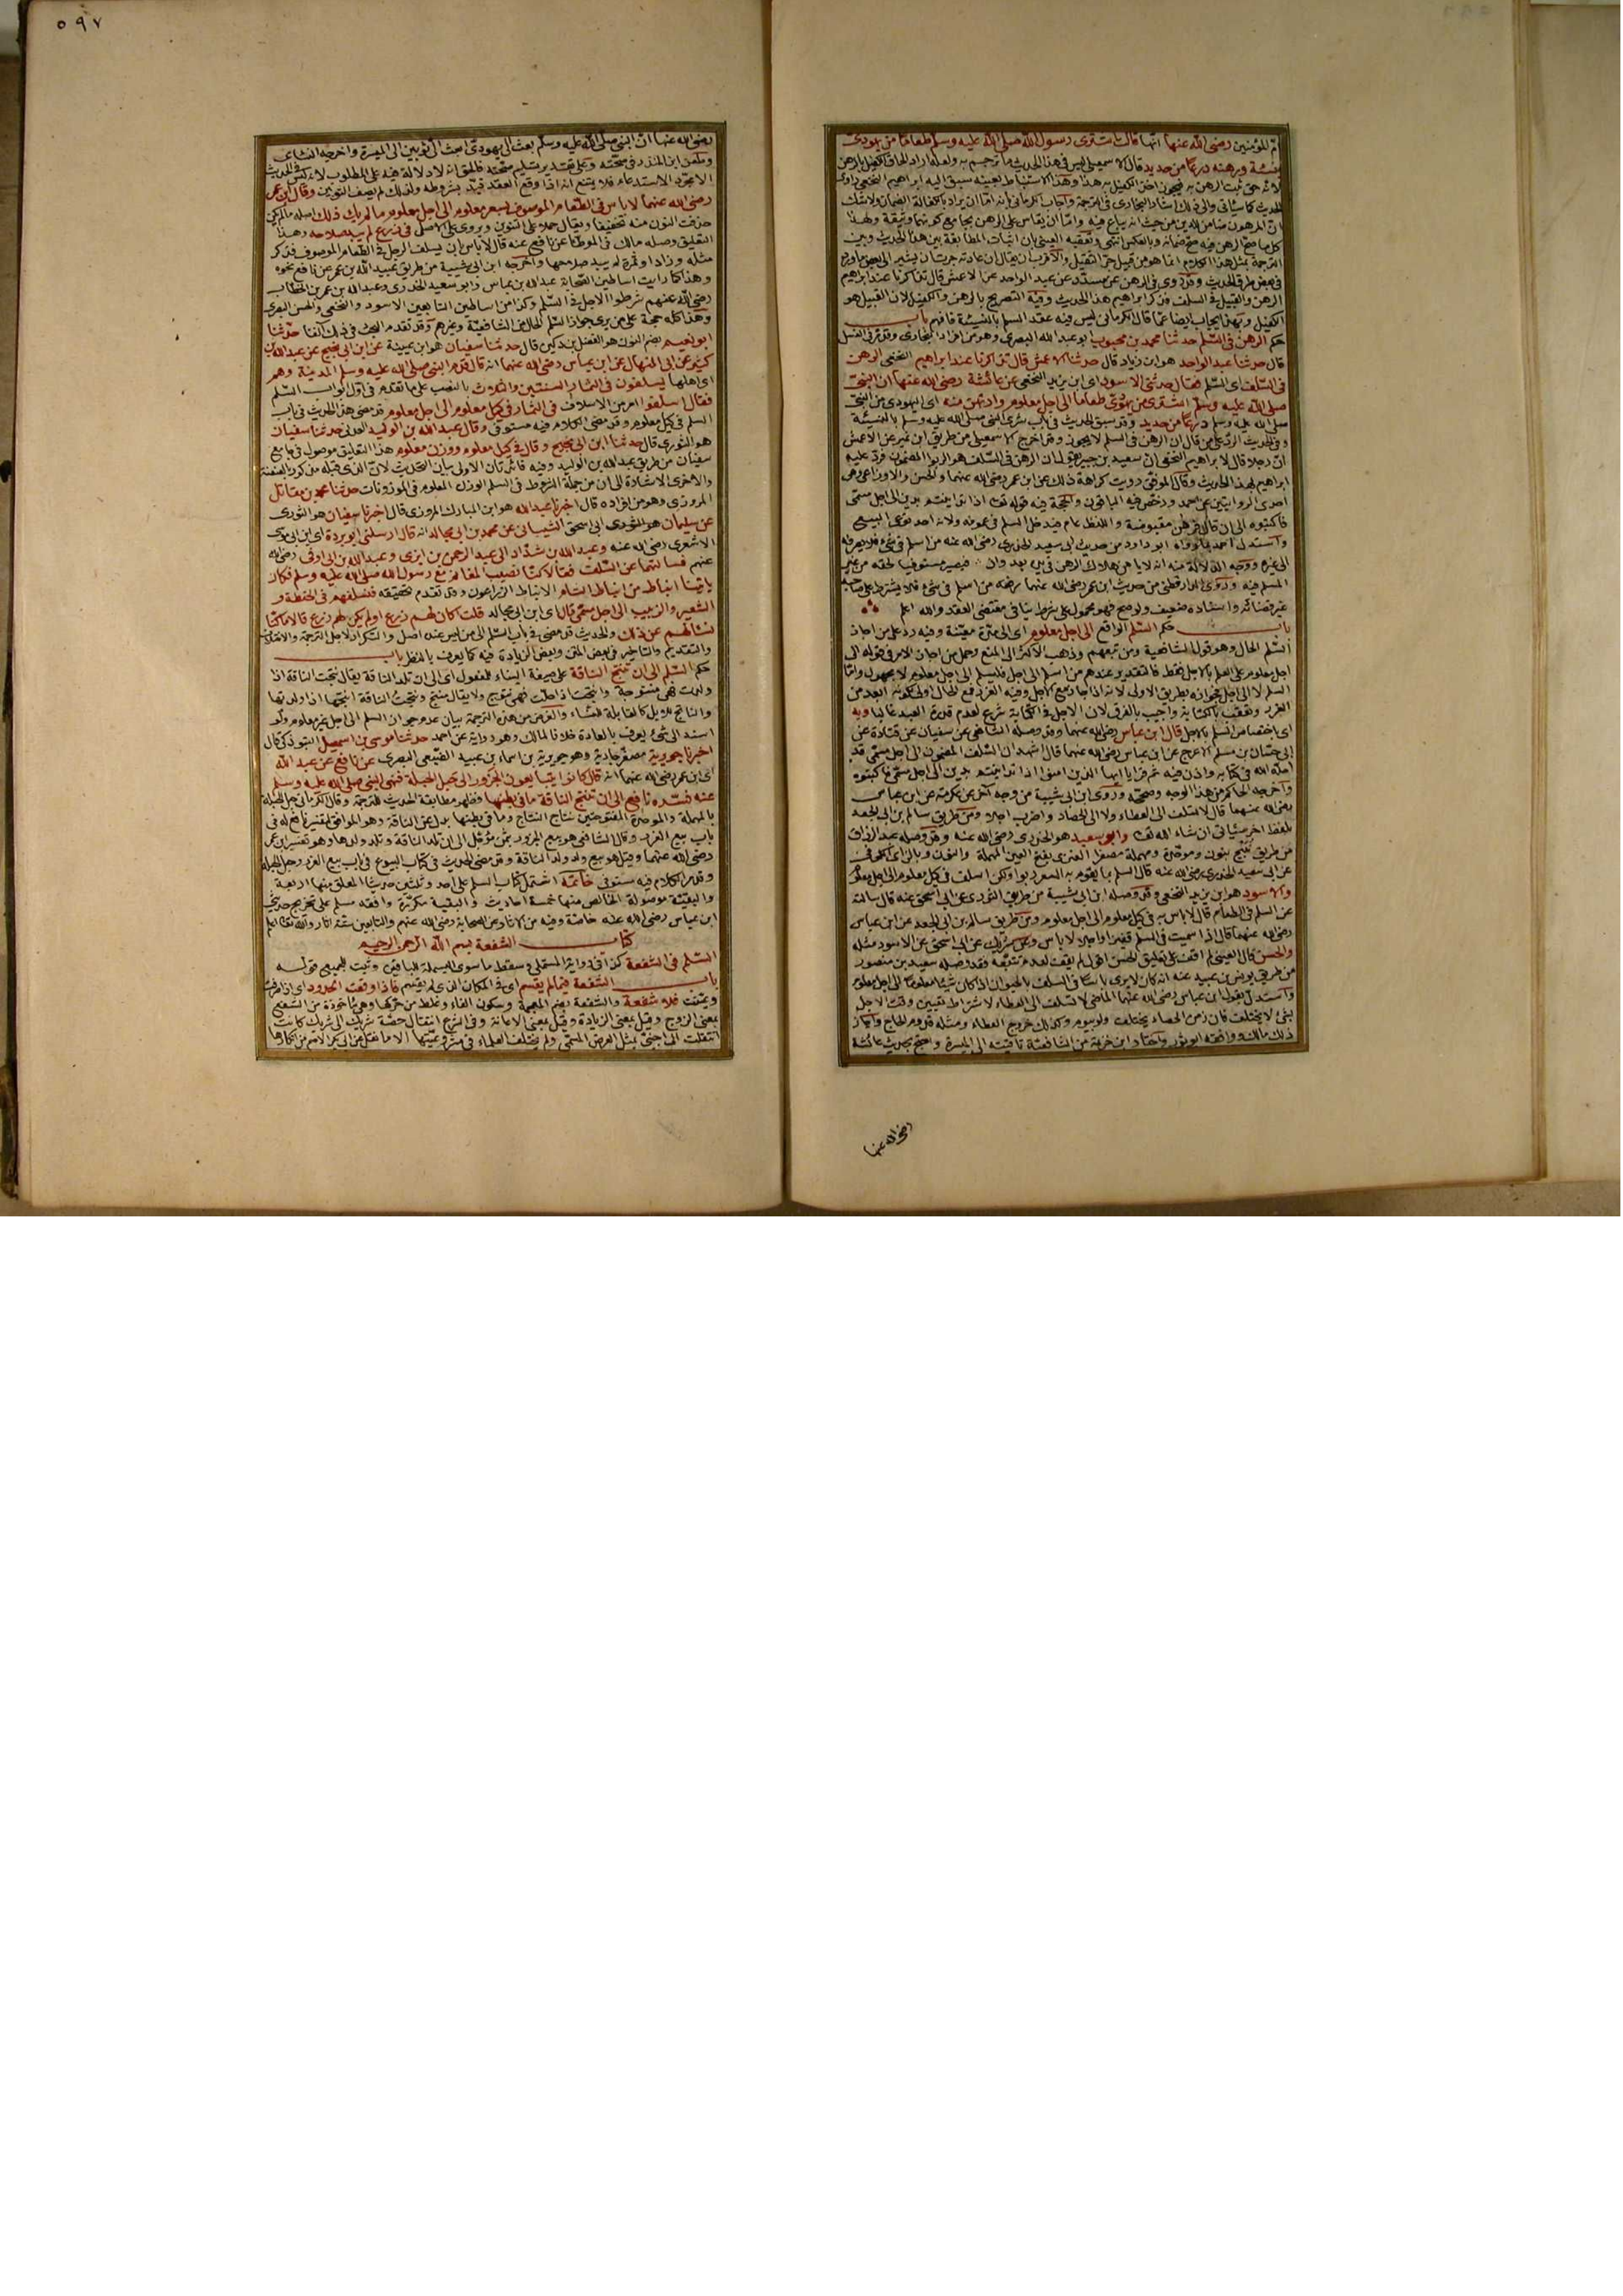 ٥٩٧
امّ المؤمنين رضى الله عنها انّها قالت اشترى رسول الله صلى الله عليه وسلم طعاما من يهودىّ
بنسئة ورهنه درعا من حديد قال الاسمعيلى ليس فى هذا الحديث ما ترجم به ولعله اراد الحاق الكفيل بالرهن
لانه حق ثبت الرهن به فيجوز اخذ الكفيل به هذا وهذا الاستنباط بعينه سبق اليه ابراهيم النخعى راوى
الحديث كما سيأتى والى ذلك اشار البخارى فى الترجمة واجاب الكرمانى بانه امّا ان يراد بالكفالة الضمان ولا شك
انّ المرهون ضامن للدين من حيث انه يباع فيه وامّا ان يقاس على الرهن بجامع كونهما وثيقة ولهذا
كل ما صح الرهن فيه صح ضمانه وبالعكس انتهى وتعقبه العينى بان اثبات المطابقة بين هذا الحديث وبين
الترجمة بمثل هذا الكلام انما هو من قبيل جرّ الثقيل والاقرب ان يقال ان عادته جرت ان يشير الى بعض ما ورد
فى بعض طرق الحديث وقد روى فى الرهن عن مسدّد عن عبد الواحد عن الاعمش قال تذاكرنا عند ابراهيم
الرهن والقبيل فى السلف فذكر ابراهيم هذا الحديث وفيه التصريح بالرهن والكفيل لان القبيل هو
الكفيل وبهذا يجاب ايضا عمّا قال الكرمانى ليس فيه عقد السلم بالنسيئة فافهم باب
حكم الرهن فى السّلم حدثنا محمد بن محبوب ابو عبد الله البصرى وهو من افراد البخارى وقد مرّ فى الغسل
قال حدثنا عبد الواحد هو ابن زياد قال حدثنا الاعمش قال تذاكرنا عند ابراهيم النخعى الرهن
فى السّلف اى السّلم فقال حدثنى الاسود اى ابن يزيد النخعى عن عائشة رضى الله عنها ان النبىّ
صلى الله عليه وسلم اشترى من يهودىّ طعاما الى اجل معلوم وارتهن منه اى اليهودى من النبىّ
صلى الله عليه وسلم درعا من حديد وقد سبق الحديث فى باب شرى النبى صلى الله عليه وسلم بالنسيئة
وفى الحديث الردّ على من قال ان الرهن فى السلم لا يجوز وقد اخرج الاسمعيلى من طريق ابن نمير عن الاعمش
انّ رجلا قال لابراهيم النخعى انّ سعيد بن جبير يقول ان الرهن فى السّلف هو الربوا المضمون فردّ عليه
ابراهيم بهذا الحديث وقال الموفّق رويت كراهة ذلك عن ابن عمر رضى الله عنهما والحسن والاوزاعى وهى
احدى الروايتين عن احمد ورخّص فيه الباقون والحجة فيه قوله تعالى اذا تداينتم بدين الى اجل مسمّى
فاكتبوه الى ان قال فرهن مقبوضة واللفظ عام فيدخل السلم فى عمومه ولانه احد نوعى البيع
واستدلّ احمد بما رواه ابو داود من حديث ابى سعيد الخدرى رضى الله عنه من اسلم فى شئ فلا يصرفه
الى غيره ووجه الدلالة منه انه لا يأمن هلاك الرهن فى يده بعدوان فيصير مستوفيا لحقه من غير
المسلم فيه وروى الدارقطنى من حديث ابن عمر رضى الله عنهما رفعه من اسلم فى شئ فلا يشترط على صاحبه
غير قضائه واسناده ضعيف ولو صح فهو محمول على شرط ينافى مقتضى العقد والله اعلم
باب حكم السّلم الواقع الى اجل معلوم اى الى مدّة معيّنة وفيه ردّ على من اجاز
السّلم الحال وهو قول الشافعية ومن تبعهم وذهب الاكثر الى المنع وحمل من اجاز الامر فى قوله الى
اجل معلوم على العلم بالاجل فقط فالتقدير عندهم من اسلم الى اجل فليسلم الى اجل معلوم لا مجهول وامّا
السلم لا الى اجل فجوازه بطريق الاولى لانه اذا جاز مع الاجل وفيه الغرر فمع الحال اولى لكونه ابعد من
الغرر وتعقّب بالكتابة واجيب بالفرق لان الاجل فى الكتابة شرع لعدم قدرة العبد غالبا وبه
اى باختصاص السلم بالاجل قال ابن عباس رضى الله عنهما وقد وصله الشافعى عن سفيان عن قتادة عن
ابى حسّان بن مسلم الاعرج عن ابن عباس رضى الله عنهما قال اشهد ان السّلف المضمون الى اجل مسمّى قد
احلّه الله فى كتابه واذن فيه ثم قرأ يا ايها الذين امنوا اذا تداينتم بدين الى اجل مسمّى فاكتبوه
واخرجه الحاكم من هذا الوجه وصحّحه وروى ابن ابى شيبة من وجه آخر عن عكرمة عن ابن عباس
رضى الله عنهما قال لا تسلف الى العطاء ولا الى الحصاد واضرب اجلا ومن طريق سالم بن ابى الجعد
بلفظ اخر سيأتى ان شاء الله تعالى وابو سعيد هو الخدرى رضى الله عنه وقد وصله عبد الرزاق
من طريق نُبَيح بنون وموحّدة ومهملة مصغرا العنزى بفتح العين المهملة والنون وبالزاى الكوفىّ
عن ابى سعيد الخدرى رضى الله عنه قال السلم بما يقوم به السعر ربوا ولكن اسلف فى كيل معلوم الى اجل معلوم
والاسود هو ابن يزيد النخعى وقد وصله ابن ابى شيبة من طريق الثورى عن ابى اسحق عنه قال سألته
عن السلم فى الطعام قال لا بأس به فى كيل معلوم الى اجل معلوم ومن طريق سالم بن ابى الجعد عن ابن عباس
رضى الله عنهما قال اذا سميت فى السلم قفيزا واجلا لا بأس وعن شريك عن ابى اسحق عن الاسود مثله
والحسن قال العينى لم اقف على تعليق الحسن اقول لم يقف لعدم تتبّعه فقد وصله سعيد بن منصور
من طريق يونس بن عبيد عنه انه كان لا يرى بأسا فى السلف بالحيوان اذا كان شيئا معلوما الى اجل معلوم
واستدل بقول ابن عباس رضى الله عنهما الماضى لا تسلف الى العطاء لاشتراط تعيين وقت الاجل
بشئ لا يختلف فان زمن الحصاد يختلف ولو بيوم وكذلك خروج العطاء ومثله قدوم الحاج واجاز
ذلك مالك ووافقه ابو ثور واختار ابن خزيمة من الشافعيّة تأقيته الى الميسرة واحتج بحديث عائشة
رضى الله عنها
رضى الله عنها انّ النبى صلى الله عليه وسلم بعث الى يهودىّ ابعث الىّ ثوبين الى الميسرة واخرجه النسائى
وطعن ابن المنذر فى صحّته وعلى تقدير تسليم صحّته فالحق انه لا دلالة فيه على المطلوب لانه ليس فى الحديث
الا مجرّد الاستدعاء فلا يمتنع انه اذا وقع العقد قيّد بشروطه ولذلك لم يصف الثوبين وقال ابن عمر
رضى الله عنهما لا بأس فى الطعام الموصوف بسعر معلوم الى اجل معلوم ما لم يك ذلك اصله ما لم يكن
حذفت النون منه تخفيفا ويقال حملا على التنوين ويروى على الاصل فى زرع لم يبد صلاحه وهذا
التعليق وصله مالك فى الموطّا عن نافع عنه قال لا بأس بان يسلف الرجل فى الطعام الموصوف فذكر
مثله وزاد او ثمرة لم يبد صلاحها واخرجه ابن ابى شيبة من طريق عبيد الله بن عمر عن نافع نحوه
وهذا كما رايت اساطين الصحابة عبد الله بن عباس وابو سعيد الخدرى وعبد الله بن عمر بن الخطاب
رضى الله عنهم شرطوا الاجل فى السّلم وكذا من اساطين التابعين الاسود والنخعى والحسن البصرى
وهذا كله حجة على من يرى جواز السّلم الحال من الشافعيّة وغيرهم وقد تقدم البحث فى ذلك آنفا حدّثنا
ابو نعيم بضم النون هو الفضل بن دكين قال حدثنا سفيان هو ابن عيينة عن ابن ابى نجيح عن عبد الله بن
كثير عن ابى المنهال عن ابن عباس رضى الله عنهما انه قال قدم النبى صلى الله عليه وسلم المدينة وهم
اى اهلها يسلفون فى الثمار السنتين والثلاث بالنصب على ما تقدم فى اوّل ابواب السّلم
فقال اسلفوا امر من الاسلاف فى الثمار فى كيل معلوم الى اجل معلوم قد مضى هذا الحديث فى باب
السلم فى كيل معلوم وقد مضى الكلام فيه مستوفى وقال عبد الله بن الوليد العدنى حدثنا سفيان
هو الثورى قال حدثنا ابن ابى نجيح وقال فى كيل معلوم ووزن معلوم هذا التعليق موصول فى جامع
سفيان من طريق عبد الله بن الوليد وفيه فائدتان الاولى بيان التحديث لان الذى قبله مذكور بالعنعنة
والاخرى الاشارة الى ان من جملة الشروط فى السلم الوزن المعلوم فى الموزونات حدثنا محمد بن مقاتل
المروزى وهو من افراده قال اخبرنا عبد الله هو ابن المبارك المروزى قال اخبرنا سفيان هو الثورى
عن سليمان هو ابى اسحق الشيبانى عن محمد بن ابى مجالد انه قال ارسلنى ابو بردة اى ابن ابى موسى
الاشعرى رضى الله عنه وعبد الله بن شدّاد الى عبد الرحمن بن ابزى وعبد الله بن ابى اوفى رضى الله
عنهم فسألتهما عن السّلف فقالا كنا نصيب المغانم مع رسول الله صلى الله عليه وسلم فكان
يأتينا انباط من انباط الشام الانباط الزراعون وقد تقدم تحقيقه فنسلفهم فى الحنطة و
الشعير والزبيب الى اجل مسمّى قال اى ابن ابى مجالد قلت اكان لهم زرع او لم يكن لهم زرع قالا ما كنّا
نسألهم عن ذلك والحديث قد مضى فى باب السّلم الى من ليس عنده اصل والتكرار لاجل الترجمة والاختلاف
والتقديم والتاخير فى بعض المتن وبعض الزيادة فيه كما يعرف بالنظر باب
حكم السّلم الى ان تنتج الناقة على صيغة البناء للمفعول اى الى ان تلد الناقة يقال نتجت الناقة اذا
ولدت فهى منتوجة وانتجت اذا حملت فهى نتوج ولا يقال منتج ونتجت الناقة انتجها اذا اولدتها
والناتج للابل كالقابلة للنساء والغرض من هذه الترجمة بيان عدم جواز السلم الى اجل غير معلوم ولو
اسند الى شئ يعرف بالعادة خلافا لمالك وهو رواية عن احمد حدثنا موسى بن اسمعيل التبوذكى قال
اخبرنا جويرية مصغّر جارية وهو جويرية بن اسماء بن عبيد الضبعى البصرى عن نافع عن عبد الله
اى ابن عمر رضى الله عنهما انه قال كانوا يتبايعون الجزور الى حبل الحبلة فنهى النبى صلى الله عليه وسلم
عنه فسّره نافع الى ان تنتج الناقة ما فى بطنها وظهر مطابقة الحديث للترجمة وقال الكرمانى حبل الحبلة
بالمهملة والموحّدة المفتوحتين نتاج النتاج وما فى بطنها بدل عن الناقة وهو الموافق لتفسير نافع له فى
باب بيع الغرر وقال الشافعى هو بيع الجزور بثمن مؤجّل الى ان تلد الناقة وتلد ولدها وهو تفسير ابن عمر
رضى الله عنهما وقيل هو بيع ولد ولد الناقة وقد مضى الحديث فى كتاب البيوع فى باب بيع الغرر وحبل الحبلة
وقد مرّ الكلام فيه مستوفى خاتمة اشتمل كتاب السلم على احد وثلثين حديثا المعلق منها اربعة
والبقيّة موصولة الخالص منها خمسة احاديث والبقية مكرّرة وافقه مسلم على تخريج حديثى
ابن عباس رضى الله عنه خاصّة وفيه من الاثار عن الصحابة رضى الله عنهم والتابعين ستّة اثار والله تعالى اعلم
كتاب الشفعة بسم الله الرحمن الرحيم
السّلم فى الشفعة كذا فى رواية المستملى وسقط ما سوى البسملة للباقين وثبت للجميع قوله
باب الشفعة فيما لم يقسم اى فى المكان الذى لم يقسم فاذا وقعت الحدود اى اذا صرفت
وعيّنت فلا شفعة والشفعة بضم المعجمة وسكون الفاء وغلط من حرّكها وهى مأخوذة من الشفع
بمعنى الزوج وقيل بمعنى الزيادة وقيل بمعنى الاعانة وفى الشرع انتقال حصّة شريك الى شريك كانت
انتقلت الى اجنبىّ بمثل العوض المسمّى ولم يختلف العلماء فى مشروعيّتها الا ما نقل عن ابى بكر الاصم من انكارها